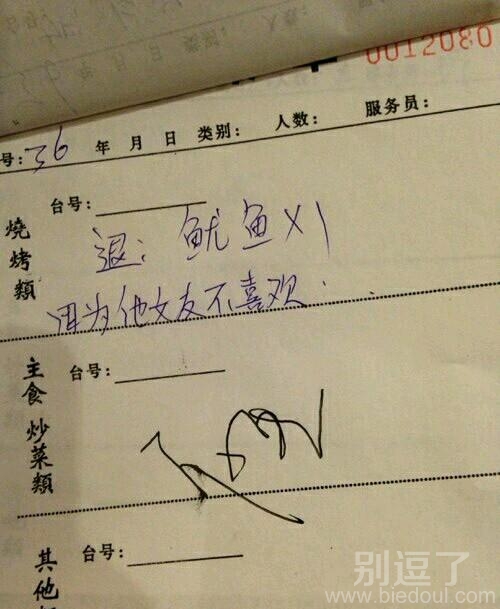 0012080
号: 36 年 月 日 类别: 人数: 服务员:
燒烤類
台号:
退: 鱿鱼X1
因为他女友不喜欢.
主食 炒菜類
台号:
其他
台号:
别逗了
www.biedoul.com